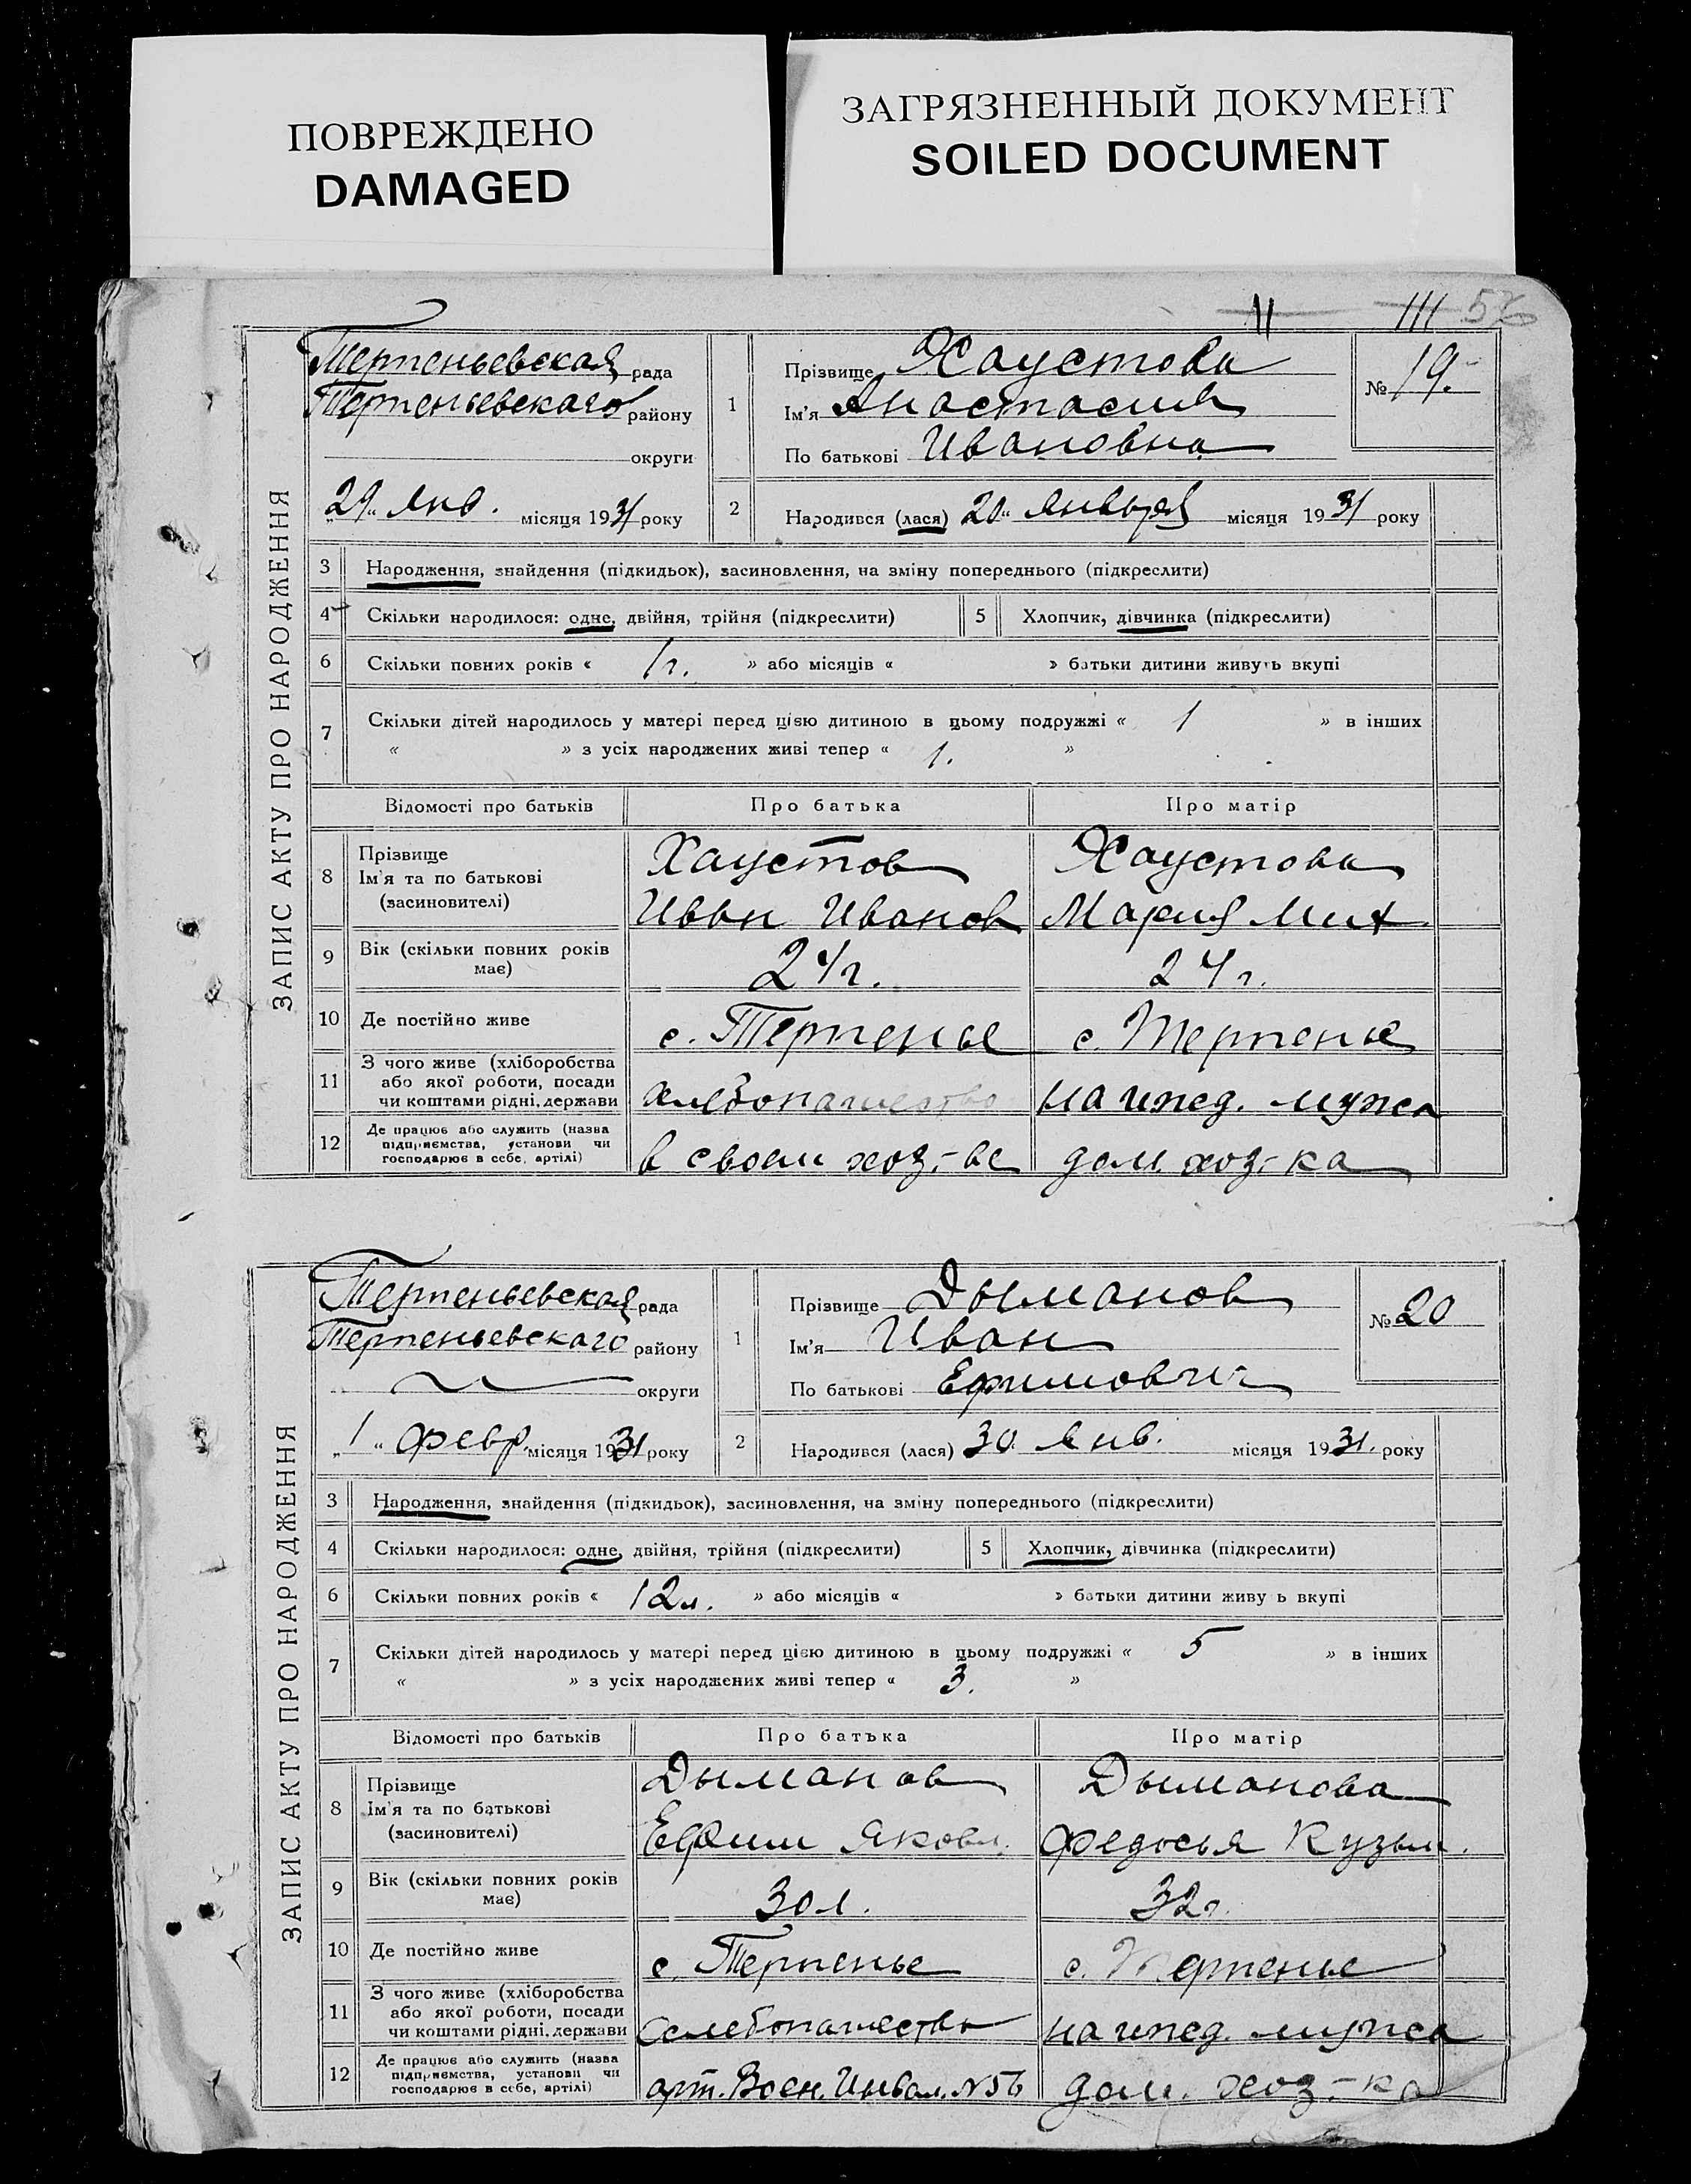 ПОВРЕЖДЕНО
DAMAGED
ЗАГРЯЗНЕННЫЙ ДОКУМЕНТ
SOILED DOCUMENT
II III 56
ЗАПИС АКТУ ПРО НАРОДЖЕННЯ
Терпеньевская рада
Терпеньевскаго району
округи
29 Янв. місяця 1931 року
1 Прізвище Хаустова
Ім'я Анастасия
По батькові Ивановна
№ 19.
2 Народився (лася) 20 Января місяця 1931 року
3 Народження, знайдення (підкидьок), засиновлення, на зміну попереднього (підкреслити)
4 Скільки народилося: одне, двійня, трійня (підкреслити) 5 Хлопчик, дівчинка (підкреслити)
6 Скільки повних років « 1 г. » або місяців « » батьки дитини живуть вкупі
7 Скільки дітей народилось у матері перед цією дитиною в цьому подружжі « 1 » в інших
« » з усіх народжених живі тепер « 1. »
Відомості про батьків Про батька Про матір
8 Прізвище
Ім'я та по батькові
(засиновителі)
Хаустов Хаустова
Иван Иванов Мария Мих
9 Вік (скільки повних років
має) 24 г. 24 г.
10 Де постійно живе с. Терпенье с. Терпенье
11 З чого живе (хліборобства
або якої роботи, посади
чи коштами рідні, держави хлебопашество на ижд. мужа
12 Де працює або служить (назва
підприємства, установи чи
господарює в себе, артілі) в своем хоз-ве дом. хоз-ка
ЗАПИС АКТУ ПРО НАРОДЖЕННЯ
Терпеньевская рада
Терпеньевскаго району
округи
„1“ февр. місяця 1931 року
1 Прізвище Дыманов
Ім'я Иван
По батькові Ефимович
№ 20
2 Народився (лася) 30 Янв. місяця 1931. року
3 Народження, знайдення (підкидьок), засиновлення, на зміну попереднього (підкреслити)
4 Скільки народилося: одне, двійня, трійня (підкреслити) 5 Хлопчик, дівчинка (підкреслити)
6 Скільки повних років « 12 л. » або місяців « » батьки дитини живу ь вкупі
7 Скільки дітей народилось у матері перед цією дитиною в цьому подружжі « 5 » в інших
« » з усіх народжених живі тепер « 3. »
Відомості про батьків Про батька Про матір
8 Прізвище
Ім'я та по батькові
(засиновителі)
Дыманов Дыманова
Ефим Яковл. Федосья Кузьм.
9 Вік (скільки повних років
має) 30 л. 32 г.
10 Де постійно живе с. Терпенье с. Терпенье
11 З чого живе (хліборобства
або якої роботи, посади
чи коштами рідні, держави хлебопашество на ижд. мужа
12 Де працює або служить (назва
підприємства, установи чи
господарює в себе, артілі) арт. Воен. Инвал. №56 дом. хоз-ка